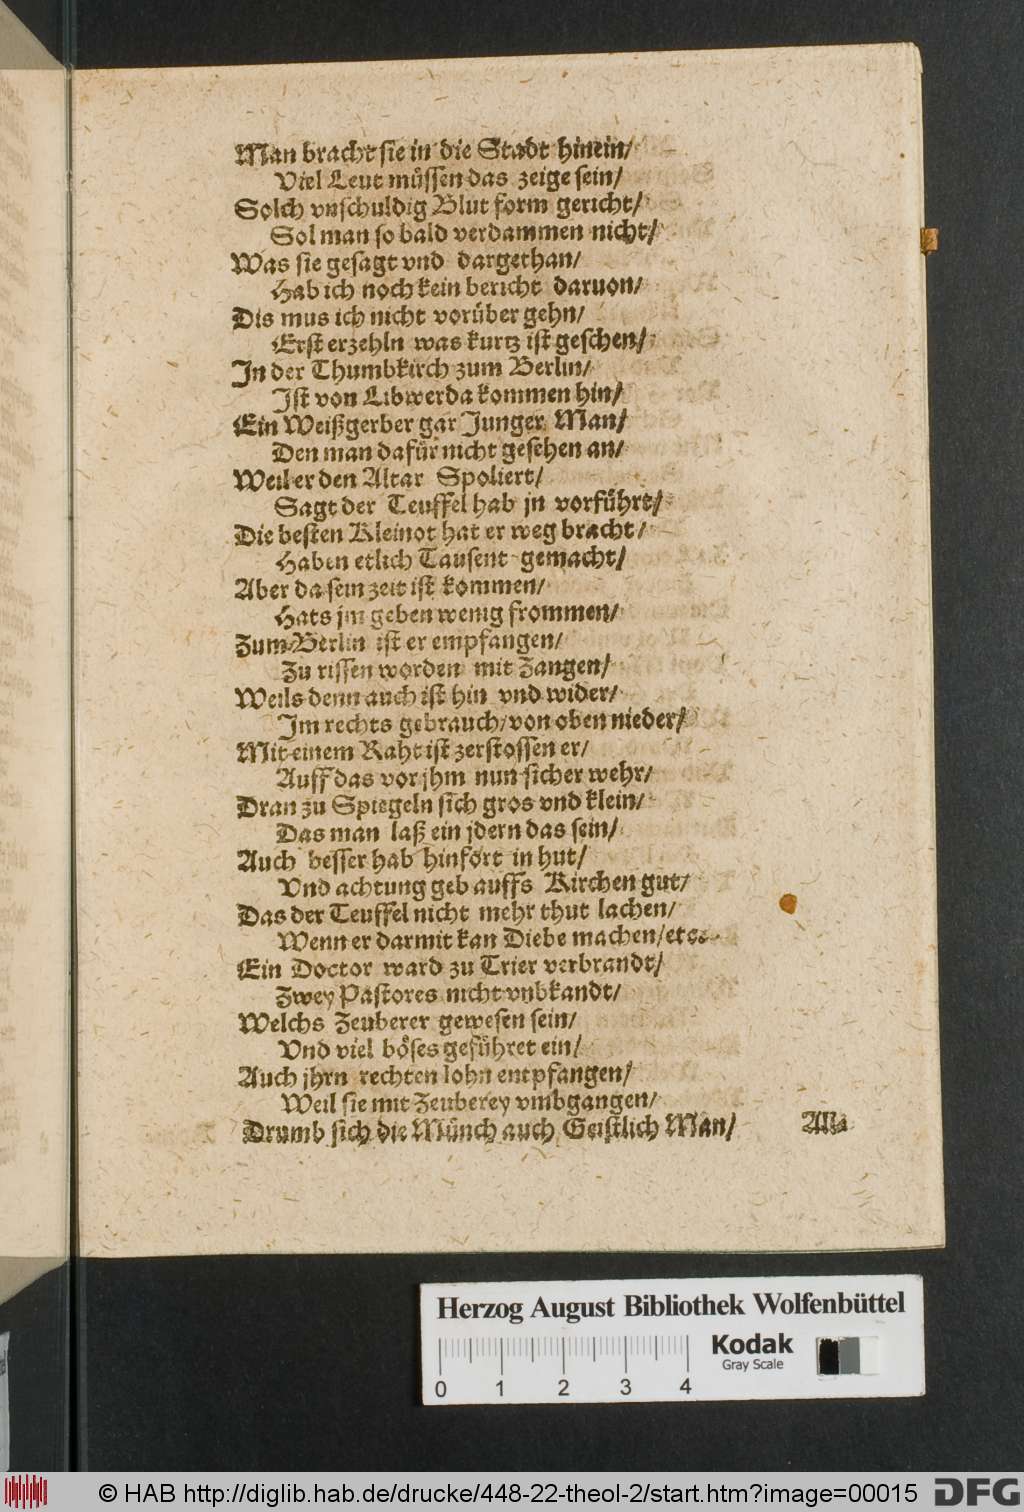 Man bracht sie in die Stadt hinein/
Viel Leut müssen das zeige sein/
Solch vnschuldig Blut form gericht/
Sol man so bald verdammen nicht/
Was sie gesagt vnd dargethan/
Hab ich noch kein bericht daruon/
Dis mus ich nicht vorüber gehn/
Erst erzehln was kurtz ist geschen/
In der Thumbkirch zum Berlin/
Ist von Libwerda kommen hin/
Ein Weißgerber gar Junger Man/
Den man dafür nicht gesehen an/
Weil er den Altar Spoliert/
Sagt der Teuffel hab jn vorführt/
Die besten Kleinot hat er weg bracht/
Haben etlich Tausent gemacht/
Aber da sein zeit ist kommen/
Hats jm geben wenig frommen/
Zum Berlin ist er empfangen/
Zu rissen worden mit Zangen/
Weils denn auch ist hin vnd wider/
Im rechts gebrauch/von oben nieder/
Mit einem Raht ist zerstossen er/
Auff das vor jhm nun sicher wehr/
Dran zu Spiegeln sich gros vnd klein/
Das man laß ein jdern das sein/
Auch besser hab hinfort in hut/
Vnd achtung geb auffs Kirchen gut/
Das der Teuffel nicht mehr thut lachen/
Wenn er darmit kan Diebe machen/etc.
Ein Doctor ward zu Trier verbrandt/
Zwey Pastores nicht vnbkandt/
Welchs Zeuberer gewesen sein/
Vnd viel böses geführet ein/
Auch jhrn rechten lohn entpfangen/
Weil sie mit Zeuberey vmbgangen/
Drumb sich die Münch auch Geistlich Man/
Alla
Herzog August Bibliothek Wolfenbüttel
0 1 2 3 4
Kodak
Gray Scale
© HAB http://diglib.hab.de/drucke/448-22-theol-2/start.htm?image=00015
DFG